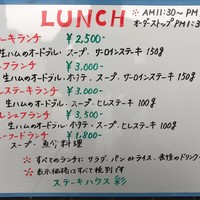 LUNCH
※ AM11:30～PM
オーダーストップPM1:3
ーキランチ ￥2,500-
生ハムのオードブル スープ サーロインステーキ 150g
フランチ ￥3,000-
生ハムのオードブル・ホタテ・スープ・サーロインステーキ 150g
レステーキランチ ￥3,000-
生ハムのオードブル・スープ・ヒレステーキ 100g
シェフランチ ￥3,500-
生ハムのオードブル・ホタテ・スープ・ヒレステーキ 100g
ーフードランチ ￥1,800-
スープ 魚介料理
※ すべてのランチに サラダ、パン or ライス、食後のドリンク
※ 表示価格はすべて税別です
ステーキハウス 彩